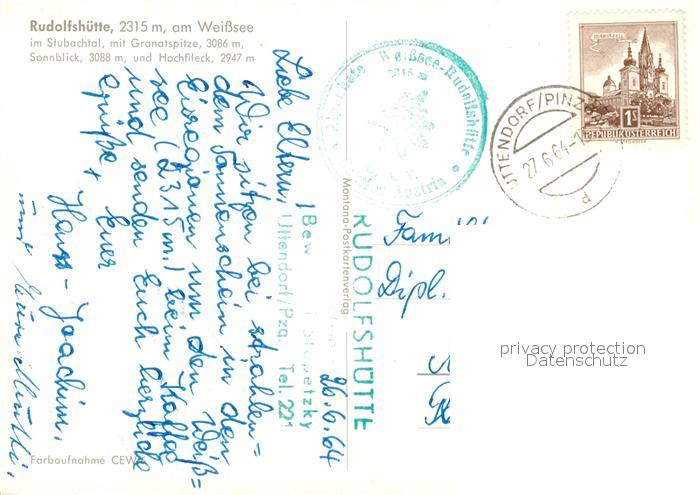 Rudolfshütte, 2315 m, am Weißsee
im Stubachtal, mit Granatspitze, 3086 m,
Sonnblick, 3088 m, und Hochfileck, 2947 m
Liebe Eltern!
Wir sitzen bei strahlen-
dem Sonnenschein in den
Eisregionen um den Weiß=
see (2315 m) beim Kaffee
und senden Euch herzliche
Grüße
Euer
Hans-Joachim.
26.6.64
Weißsee-Rudolfshütte
2315 m
Austria
Bew
Uttendorf/Pzg. Tel. 221
RUDOLFSHÜTTE
Montana-Postkartenverlag
MARIAZELL
1S
REPUBLIK ÖSTERREICH
UTTENDORF/PINZ
27.6.64-1
d
Fam
Dipl.
privacy protection
Datenschutz
Farbaufnahme CEW